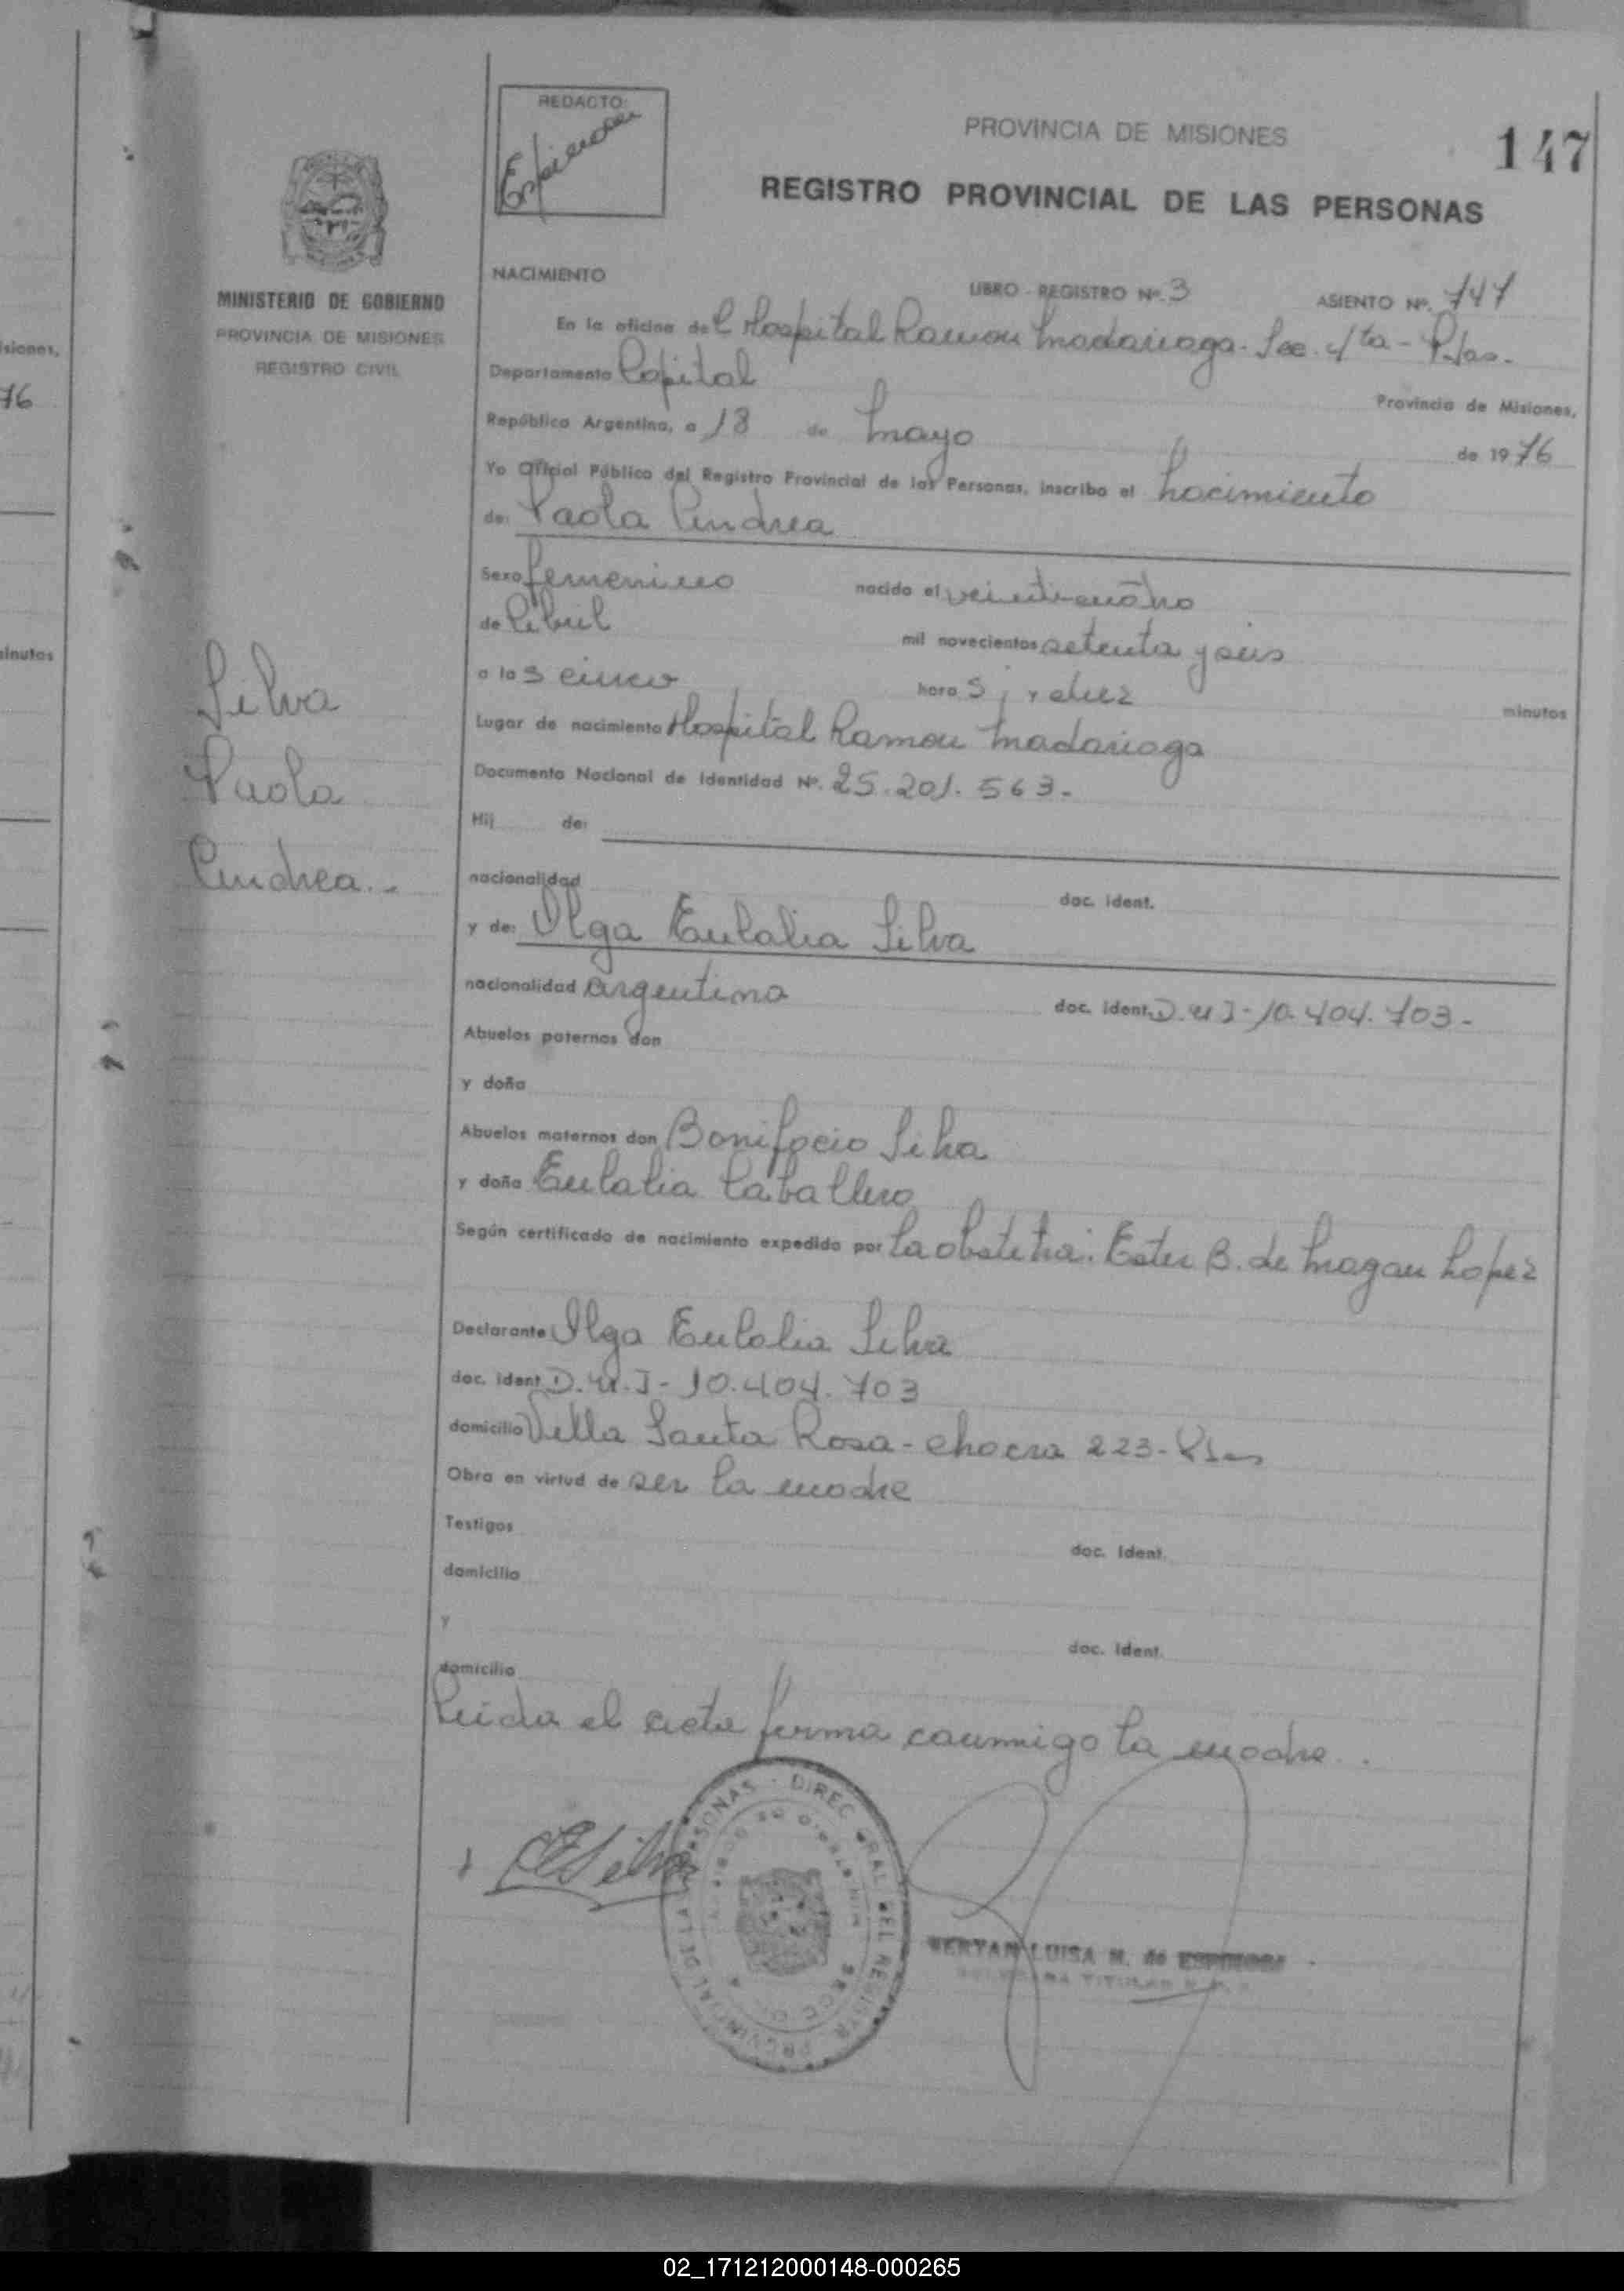 REDACTO:
PROVINCIA DE MISIONES
147
REGISTRO PROVINCIAL DE LAS PERSONAS
MINISTERIO DE GOBIERNO
PROVINCIA DE MISIONES
REGISTRO CIVIL
NACIMIENTO
LIBRO - REGISTRO Nº. 3
ASIENTO Nº. 747
En la oficina del Hospital Ramon Madariaga - Sec. 4ta - Pdas.
Departamento Capital
Provincia de Misiones,
República Argentina, a 18 de Mayo de 1976
Yo Oficial Público del Registro Provincial de las Personas, inscribo el Nacimiento
de: Paola Andrea
Sexo femenino nacido el veinticuatro
de Abril mil novecientos setenta y seis
a las cinco horas y diez minutos
Lugar de nacimiento Hospital Ramon Madariaga
Documento Nacional de Identidad Nº. 25.201.563.-
Silva
Paola
Andrea.-
Hij de:
nacionalidad doc. ident.
y de: Olga Eulalia Silva
nacionalidad argentina doc. ident. D.N.I - 10.404.703-
Abuelos paternos don
y doña
Abuelos maternos don Bonifacio Silva
y doña Eulalia Caballero
Según certificado de nacimiento expedido por la obstetra: Ester B. de Magan Lopez
Declarante Olga Eulalia Silva
doc. ident. D.N.I - 10.404.703
domicilio Villa Santa Rosa - chacra 223 - Pdas
Obra en virtud de ser la madre
Testigos doc. ident.
domicilio
y doc. ident.
domicilio
Leida el acta firma conmigo la madre.
LUISA M. de ESPINOSA
siones,
76
minutos
02_171212000148-000265